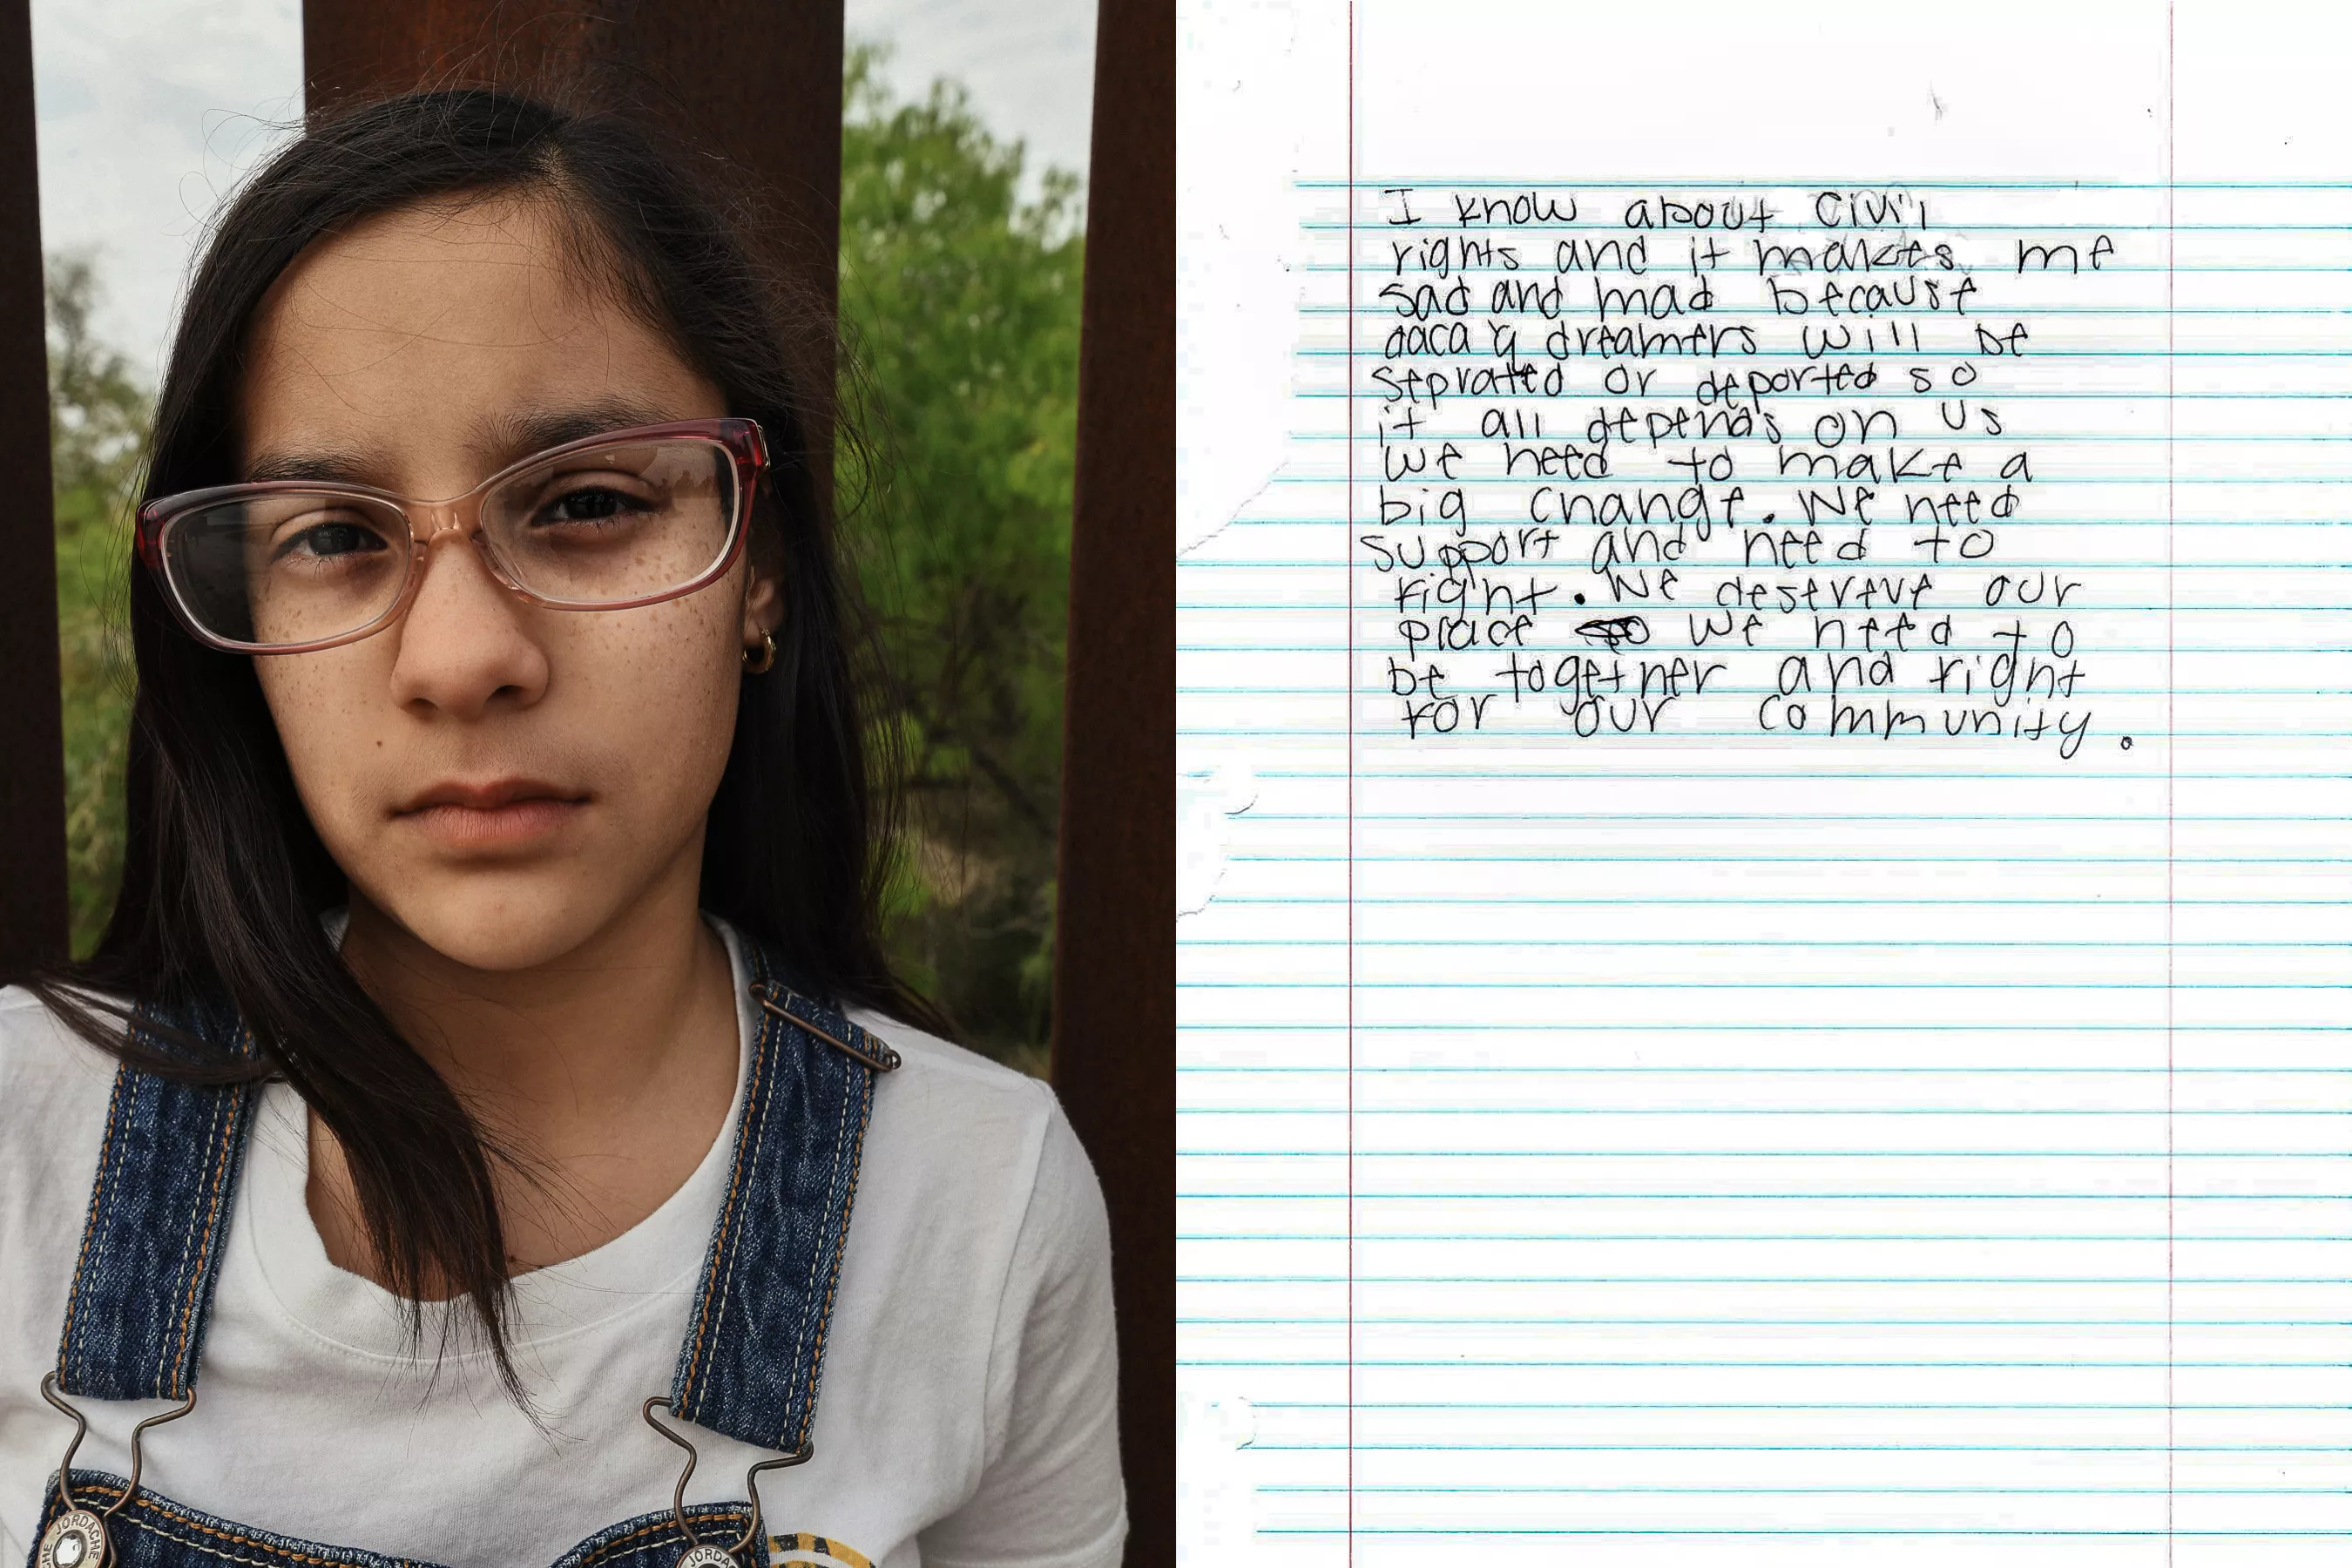 I know about civil
rights and it makes me
sad and mad because
daca y dreamers will be
seprated or deported so
it all depends on us
we need to make a
big change. We need
support and need to
right. We desereve our
place we need to
be together and right
for our community.
JORDACHE
JORDA